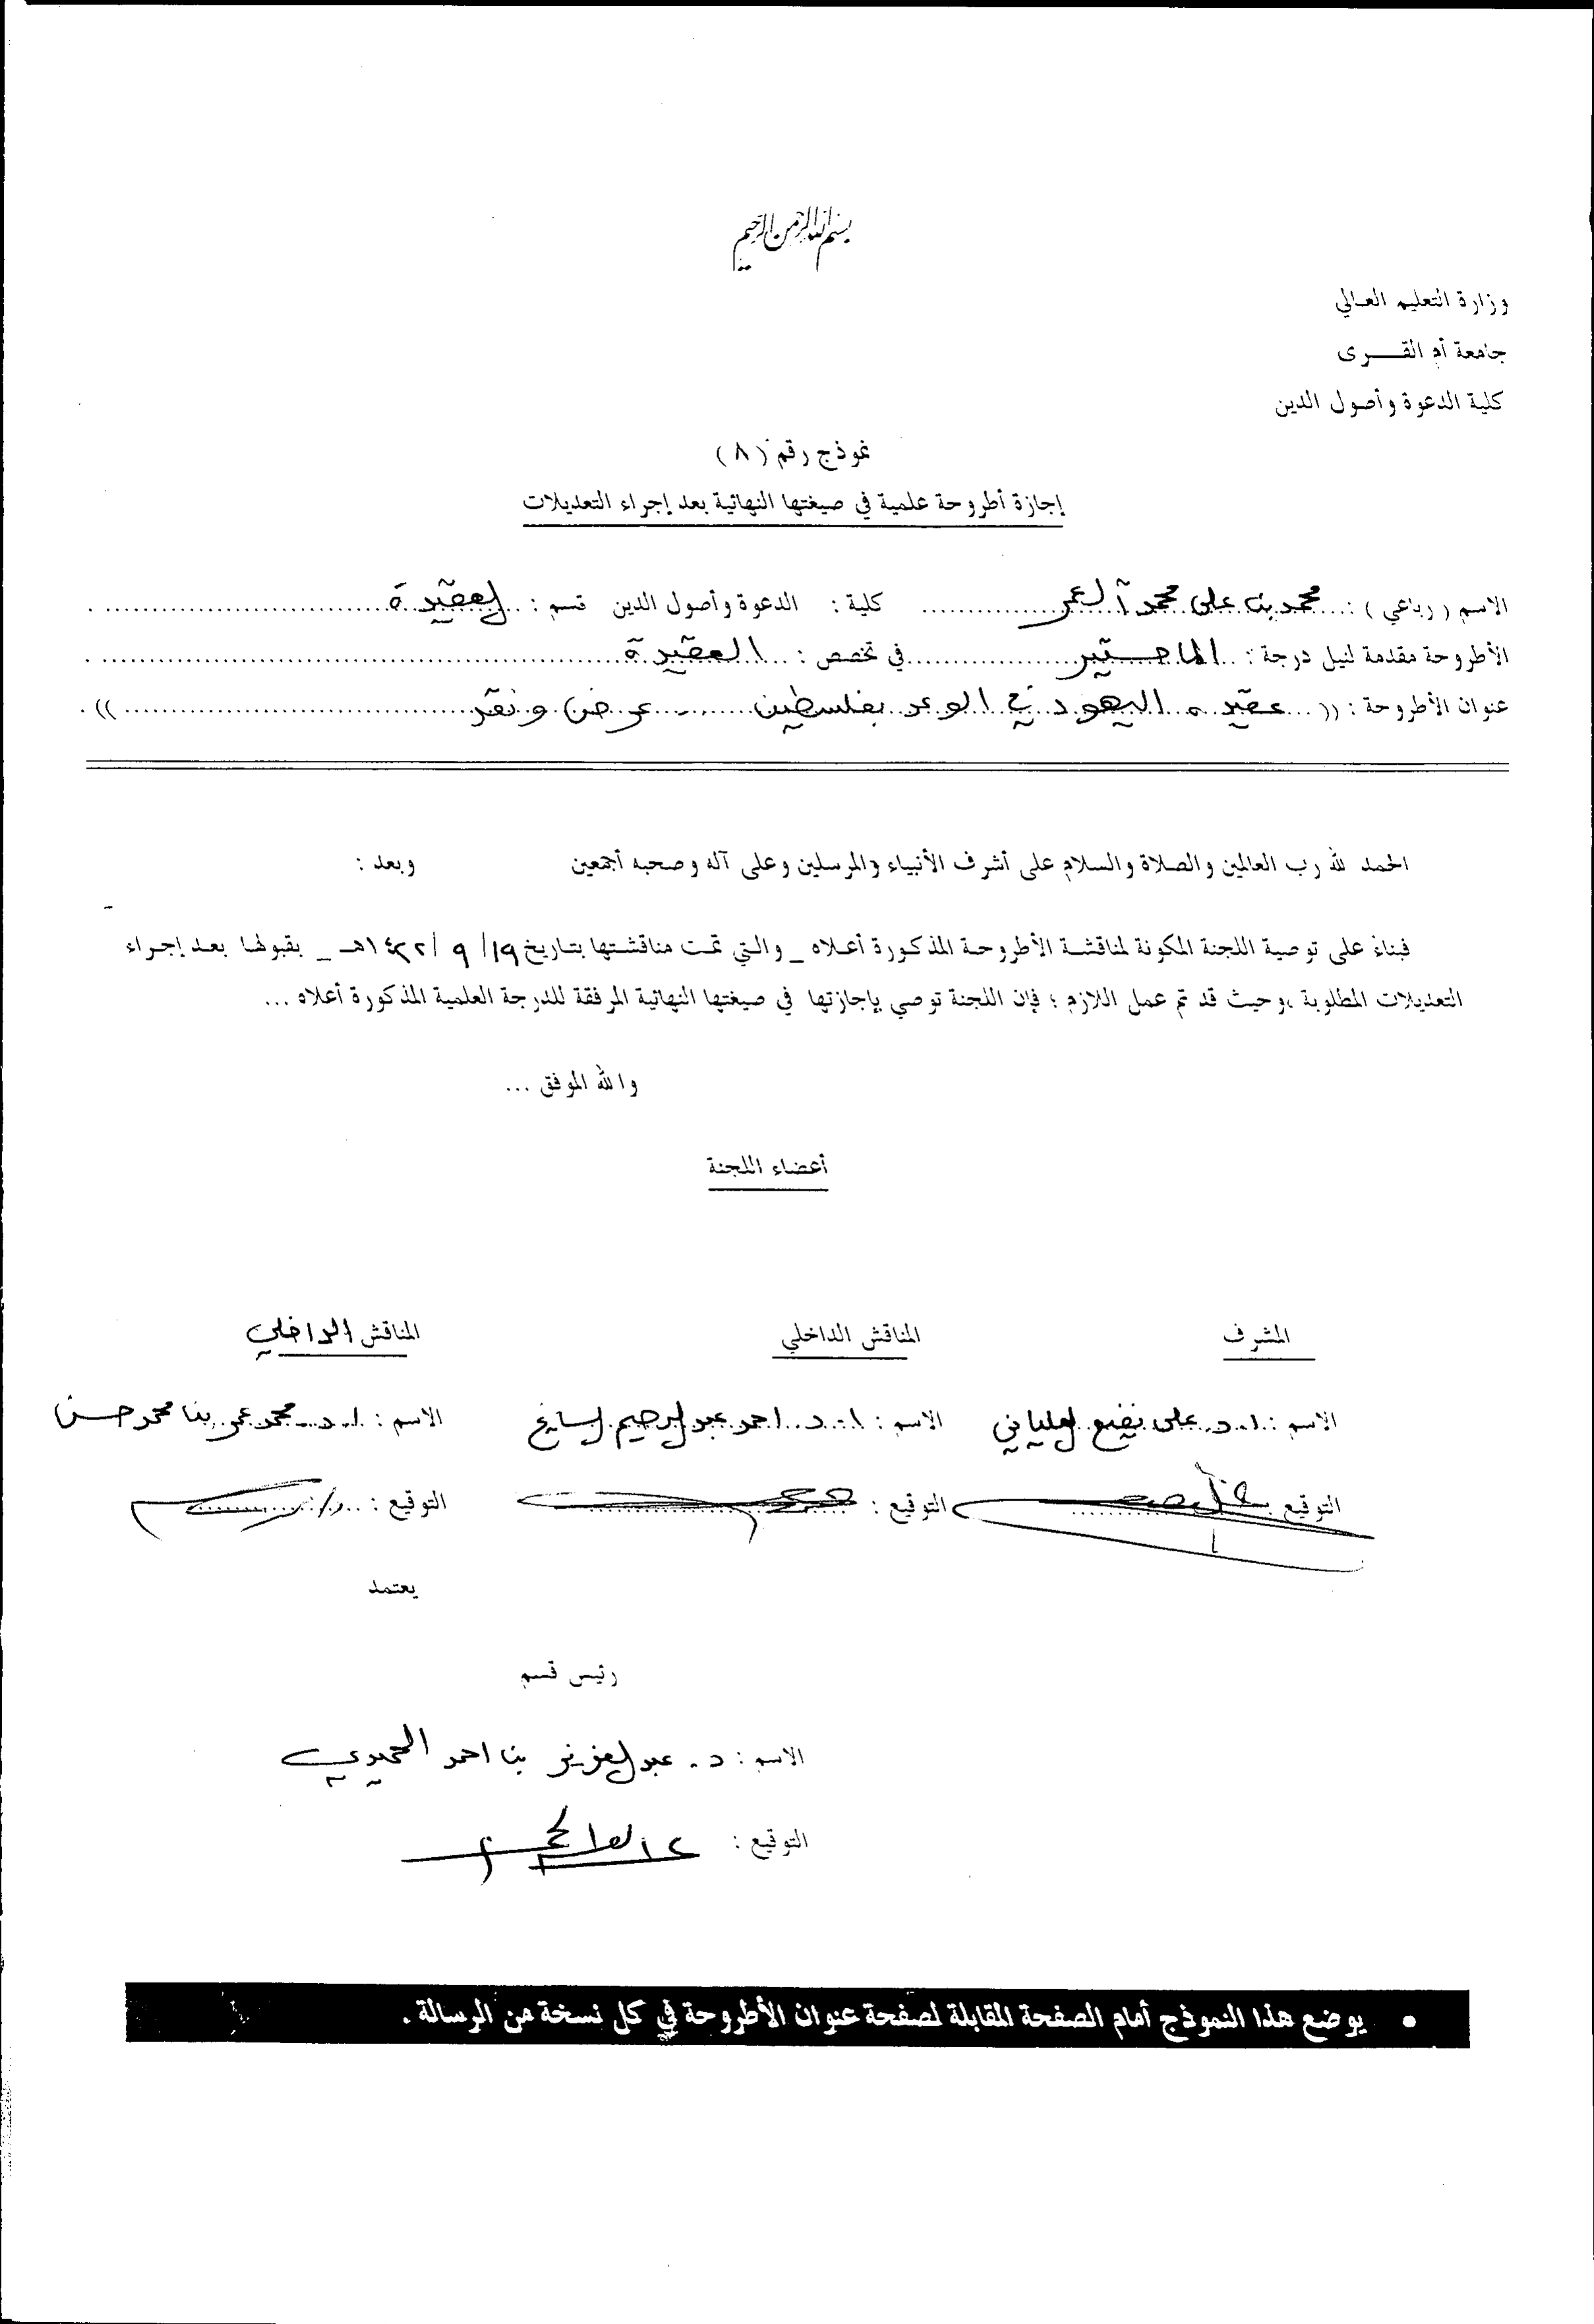 بسم الله الرحمن الرحيم
وزارة التعليم العالي
جامعة أم القــــرى
كلية الدعوة وأصول الدين
نموذج رقم (٨)
إجازة أطروحة علمية في صيغتها النهائية بعد إجراء التعديلات
الاسم ( رباعي ) : محمد بن علي محمد آل عمر كلية : الدعوة وأصول الدين قسم : العقيدة
الأطروحة مقدمة لنيل درجة : الماجستير في تخصص : العقيدة
عنوان الأطروحة : (( عقيدة اليهود في الوعد بفلسطين ... عرض ونقد )) .
الحمد لله رب العالمين والصلاة والسلام على أشرف الأنبياء والمرسلين وعلى آله وصحبه أجمعين وبعد :
فبناءً على توصية اللجنة المكونة لمناقشة الأطروحة المذكورة أعلاه _ والتي تمت مناقشتها بتاريخ ١٩/ ٩ /١٤٢٢هـ _ بقبولها بعد إجراء
التعديلات المطلوبة ،وحيث قد تم عمل اللازم ؛ فإن اللجنة توصي بإجازتها في صيغتها النهائية المرفقة للدرجة العلمية المذكورة أعلاه ...
والله الموفق ...
أعضاء اللجنة
المشرف المناقش الداخلي المناقش الداخلي
الاسم : ا.د. علي نفيع العلياني الاسم : ا.د. احمد عبدالرحيم السايح الاسم : ا.د. محمد عمر بن محمد حسن
التوقيع التوقيع : التوقيع :
يعتمد
رئيس قسم
الاسم : د. عبدالعزيز بن احمد الحميدي
التوقيع :
• يوضع هذا النموذج أمام الصفحة المقابلة لصفحة عنوان الأطروحة في كل نسخة من الرسالة .